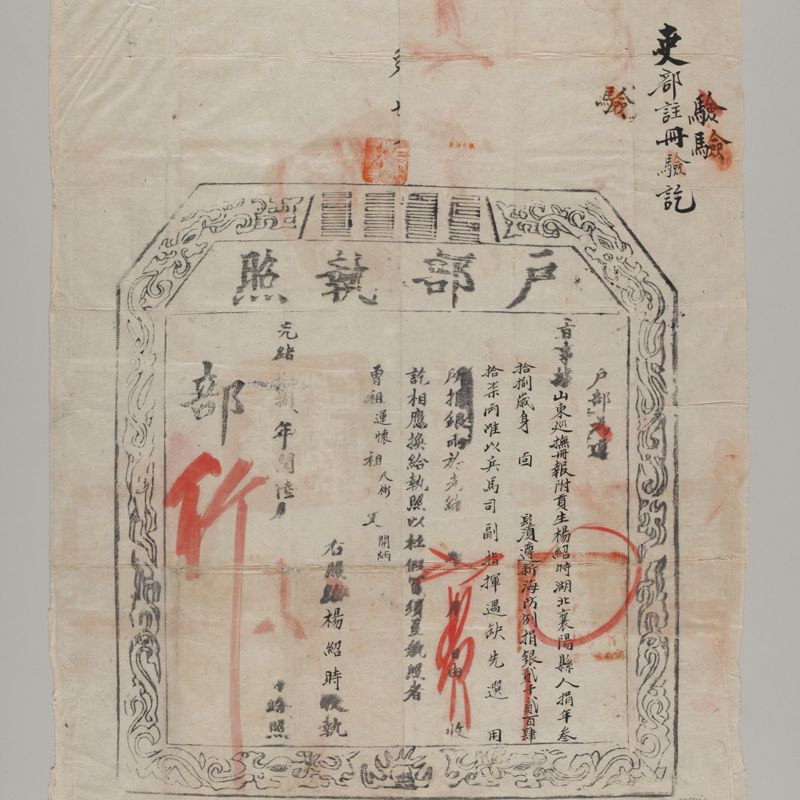 吏部註冊驗訖
驗驗
驗
戶部執照
戶部為
山東巡撫冊報附貢生楊紹時湖北襄陽縣人捐年叁
拾捌歲身 面 鬚遵新海防例捐銀貳千貳百肆
拾柒兩准以兵馬司副指揮過缺先選用
所捐銀兩於光緒 年 月 日由 收
訖相應換給執照以杜假冒須至執照者
曾祖運懷 祖 尺彬 父 開炳
右照給楊紹時收執
光緒 捌年閏陸月 日給照
部
行